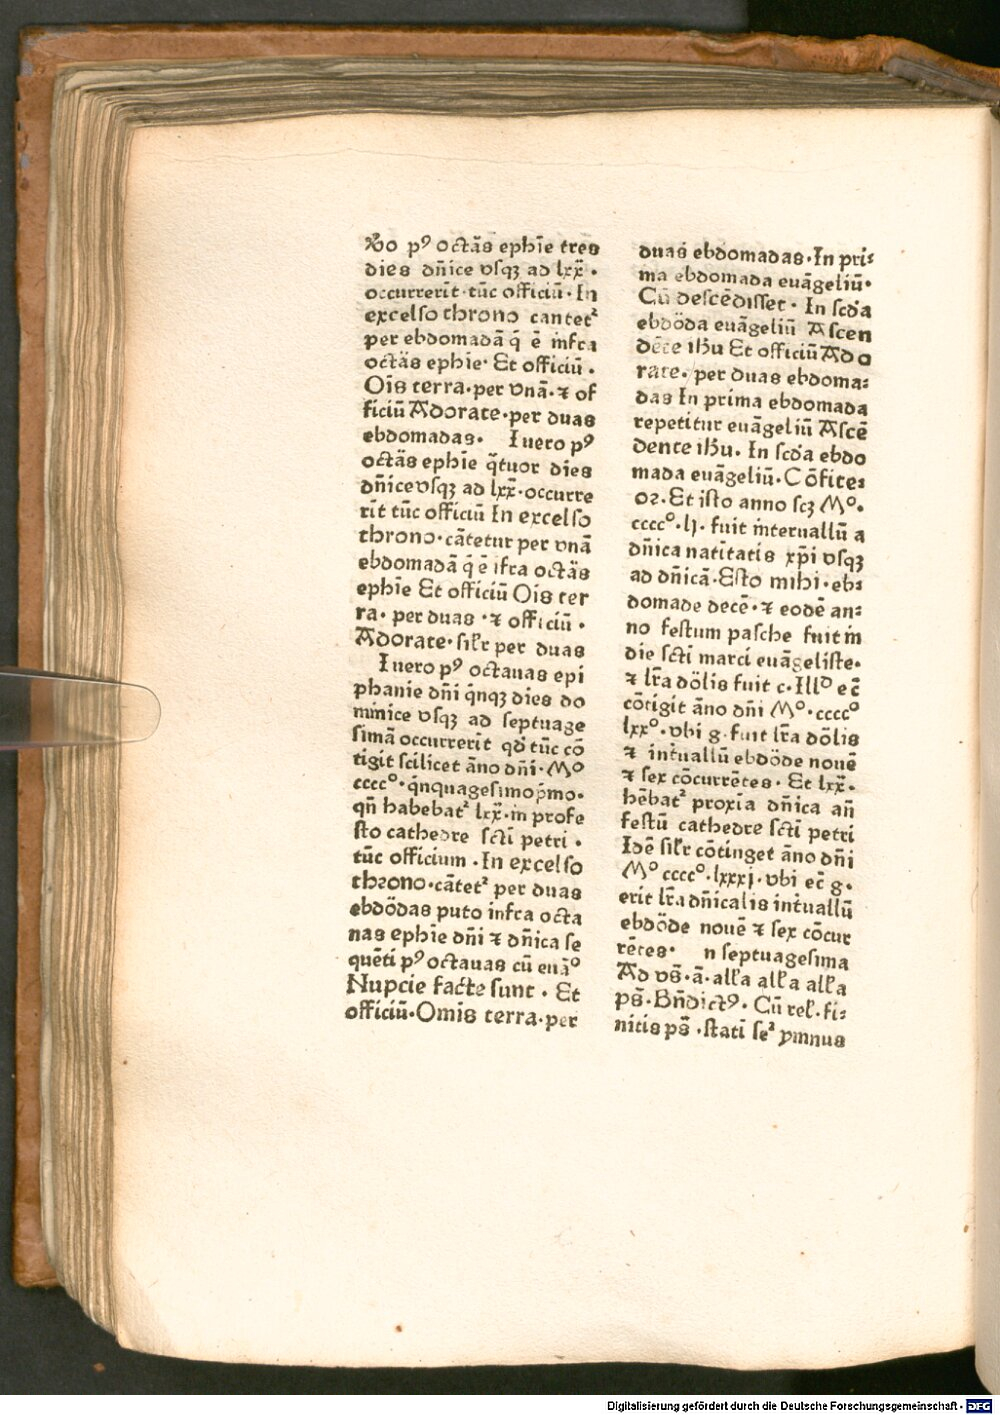 v̄o pꝰ octās ephīe tres
dies dn̄ice vsqꝫ ad lxx̄ ·
occurrerīt·tūc officiū·In
excelso throno cantetᷣ
per ebdomadā q̄ ē infra
octās ephīe· Et officiū ·
Oīs terra·per vnā·⁊ of
ficiū Adorate·per duas
ebdomadas· I uero pꝰ
octās ephīe q̄tuor dies
dn̄ice vsqꝫ ad lxx̄·occurre
rīt tūc officiū In excelso
throno·cātetur per vnā
ebdomadā q̄ ē īfra octās
ephīe Et officiū Oīs ter
ra· per duas ·⁊ officiū ·
Adorate·silr̄ per duas
I uero pꝰ octauas epi
phanie dn̄i qīnqꝫ dies do
minice vsqꝫ ad septuage
simā occurrerīt qd̄ tūc cō
tigit scilicet āno dn̄i·Mᵒ
ccccᵒ·qīnquagesimo p̄mo·
qn̄ habebatᷣ lxx̄·in profe
sto cathedre sctī petri ·
tūc officium ·In excelso
throno·cātetᷣ per duas
ebdōdas puto infra octa
nas ephīe dn̄i ⁊ dn̄ica se
quēti pꝰ octauas cū euāᵒ
Nupcie facte sunt · Et
officiū·Omīs terra·per
duas ebdomadas·In pri⸗
ma ebdomada euāgeliū·
Cū descēdisset · In scd̄a
ebdōda euāgeliū Ascen
dēte ihū Et officiū Ado
rate· per duas ebdoma⸗
das In prima ebdomada
repetitur euāgeliū Ascē
dente ihū· In scd̄a ebdo
mada euāgeliū·Cōfite⸗
or·Et isto anno scꝫ Mᵒ·
ccccᵒ·lj· fuit interuallū a
dn̄ica natiītatis xp̄i vsqꝫ
ad dn̄icā·Esto mihi·eb⸗
domade decē·⁊ eodē an⸗
no festum pasche fuit in
die sctī marci euāgeliste·
⁊ lr̄a dōlis fuit c·Illᵒ ec̄
cōtigit āno dn̄i Mᵒ·ccccᵒ
lxxᵒ·vbi g·fuit lr̄a dōlis
⁊ int̄uallū ebdōde nouē
⁊ sex cōcurrētes· Et lxx̄·
hēbatᷣ proxīa dn̄ica an̄
festū cathedre sctī petri
Idē silr̄ cōtinget āno dn̄i
Mᵒ ccccᵒ·lxxxj·vbi ec̄ g·
erit lr̄a dn̄icalis int̄uallū
ebdōde nouē ⁊ sex cōcur
rētes· n septuagesima
Ad vs̄·ā·all'a all'a all'a
ps̄·Bn̄dictꝰ· Cū rel'·fi⸗
nitis ps̄ ·statī seᷣ ymnus
Digitalisierung gefördert durch die Deutsche Forschungsgemeinschaft · DFG